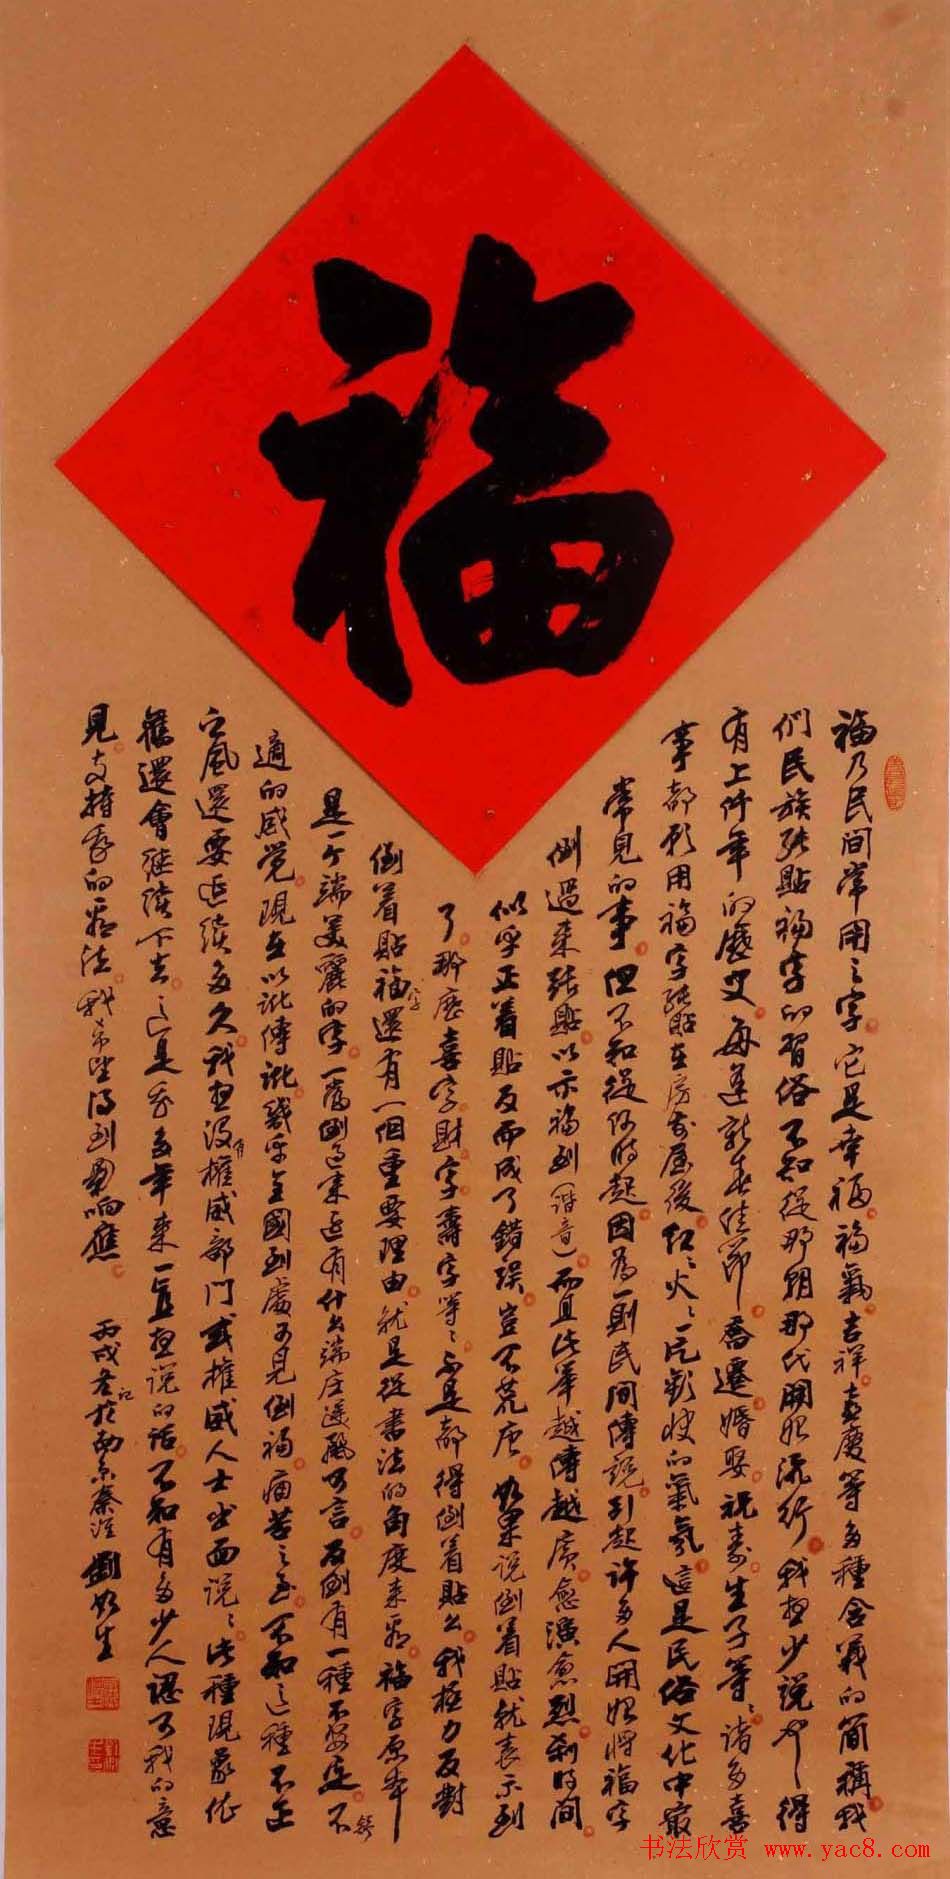 福
福乃民间常用之字它是幸福福氣吉祥喜慶等多種含義的简稱我
們民族張貼福字的習俗不知從那朝那代開始流行我想少说也得
有上仟年的歷史每逢新春佳節喬遷婚娶祝寿生子等等諸多喜
事都形用福字張貼在房前屋後红红火火一片歡快的氣氛這是民俗文化中最
常見的事但不知從何時起因為一則民间傳説引起许多人開始將福字
倒過来張貼以示福到(谐音)而且此举越傳越廣愈演愈烈刹时间
似乎正着貼反而成了錯誤豈不荒唐如果说倒着貼就表示到
了那麽喜字財字壽字等等不是都得倒着貼么我極力反對
倒着貼福字還有一個重要理由就是從書法的角度来看福字原本
是一个端美麗的字一當倒过来还有什么端庄優雅可言反倒有一種不安定不舒
適的感觉現在以訛傳訛幾乎全國到處可見倒福痛苦之至不知这種不正
之風還要延续多久我想没有權威部门或權威人士出面说说此種現象依
舊還會继续下去这是我多年来一直想说的话不知有多少人認可我的意
見支持我的看法我希望得到回响應
丙戌冬記於南京秦淮劉如生
书法欣赏 www.yac8.com